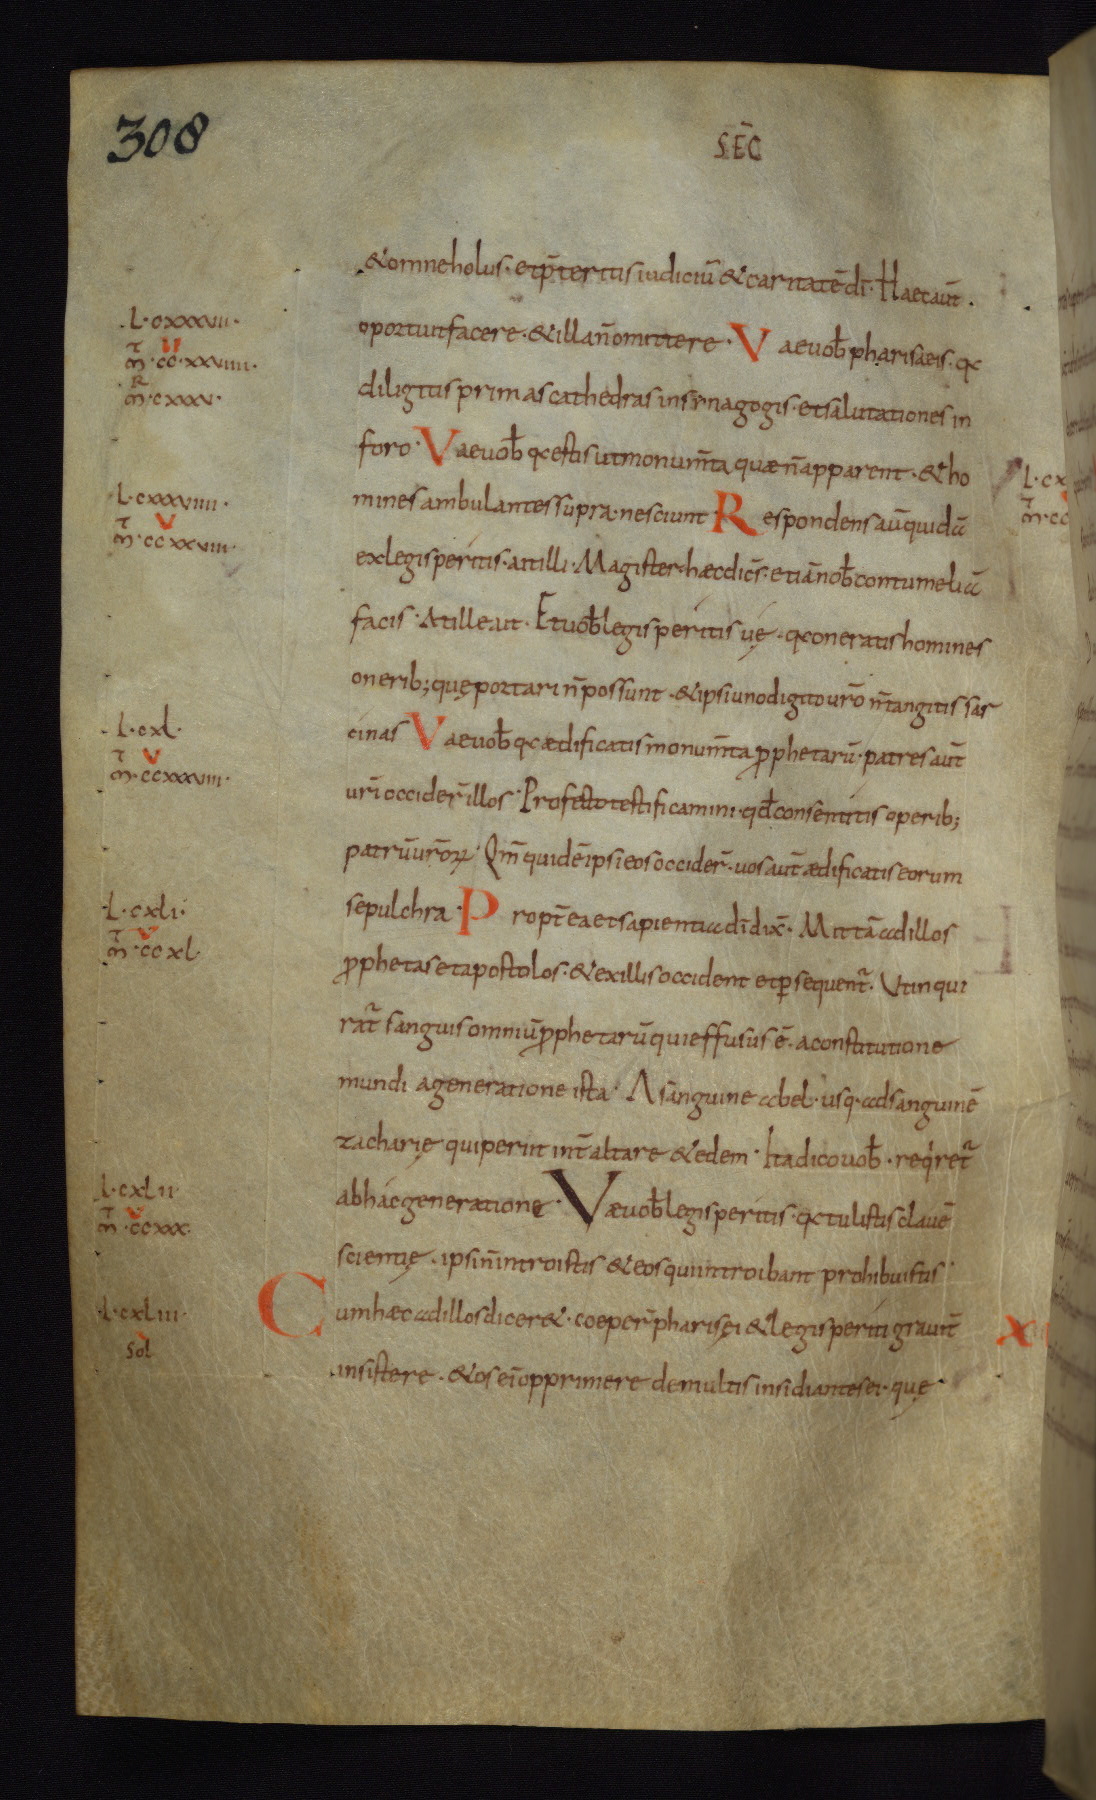 308
SEC̄
& omne holus · et p̄teritis iudiciū & caritatē dī · Haec aut̄ ·
oportuit facere · & illa n̄ omittere · Vae uob̄ pharisaeis · qc
diligitis primas cathedras in synagogis · et salutationes in
foro · Vae uob̄ qc estis ut monum̄ta quae n̄ apparent · & ho
mines ambulantes supra · nesciunt · Respondens aut̄ quidā
ex legis peritis · ait illi · Magister · haec dicēs · etiā nob̄ contumeliā
facis · At ille ait · Et uob̄ legis peritis uę · qc oneratis homines
onerib; quę portari n̄ possunt · & ipsi uno digito ur̄o n̄ tangitis sar
cinas Vae uob̄ qc aedificatis monum̄ta ꝓphetarū · patres aut̄
ur̄i occider̄ illos · Profecto testificamini · qd̄ consentitis operib;
patrū ur̄oꝝ · Qm̄ quidē ipsi eos occider̄ · uos aut̄ aedificatis eorum
sepulchra · Propt̄ea et sapientia dī dix̄ · Mittā ad illos
ꝓphetas et apostolos · & ex illis occident et ꝑsequent̄ · Ut inqui
rat̄ sanguis omniū ꝓphetarū qui effusus ē · a constitutione
mundi a generatione ista · A sanguine abel · usq · ad sanguinē
zacharię qui periit int̄ altare & edem · Ita dico uob̄ · reqiret̄
ab hac generatione · Vae uob̄ legis peritis · qc tulistis clauē
scientię · ipsi n̄ introistis & eos qui introibant prohibuistis ·
Cum haec ad illos dicer& · coeper̄ pharisęi & legis periti grauit̄
insistere · & os eī opprimere de multis insidiantes ei · quę
L · cxxxvii ·
mt̄ · ccxxviiii ·
mr̄ · cxxxv ·
L · cxxxviiii ·
mt̄ · ccxxviii ·
L · cxl ·
mt̄ · ccxxxviii ·
L · cxli ·
mt̄ · ccxl
L · cxlii
mt̄ · ccxxx ·
L · cxliii ·
Sol